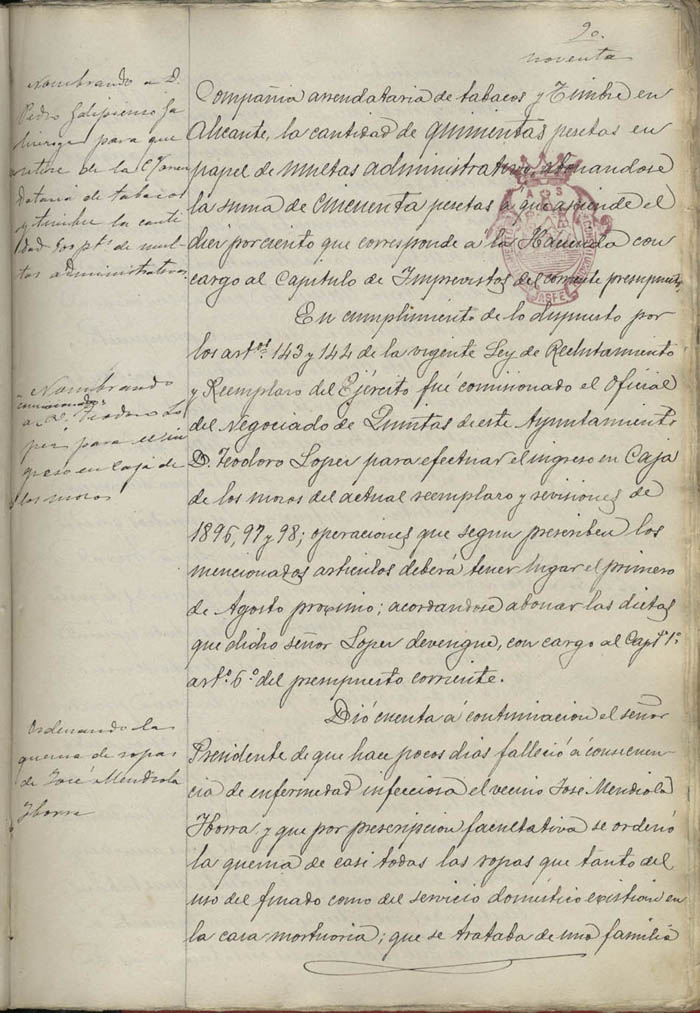 90.
noventa
Nombrando a D.
Pedro Galipienso Ga
para que
retire de la Cª arren
dataria de tabacos
y timbre la canti
dad 500 ptˢ de mul
tas administrativas
Compañia arrendataria de tabacos y Timbre en
Alicante, la cantidad de quinientas pesetas en
papel de multas administrativas, abonandose
la suma de cincuenta pesetas a que asciende el
diez por ciento que corresponde a la Hacienda con
cargo al Capitulo de Imprevistos del corriente presupuesto,
En cumplimiento de lo dispuesto por
los artˢ. 143 y 144 de la vigente Ley de Reclutamiento
y Reemplazo del Ejército fué comisionado el Oficial
del Negociado de Quintas de este Ayuntamiento
D. Teodoro Lopez para efectuar el ingreso en Caja
de los mozos del actual reemplazo y revisiones de
1896, 97 y 98; operaciones que segun prescriben los
mencionados articulos deberá tener lugar el primero
de Agosto proximo; acordandose abonar las dietas
que dicho señor Lopez devengue, con cargo al Capº 1º
artº 6º del presupuesto corriente.
Nombrando
comisionado
a D. Teodoro Lo
pez para el in
greso en Caja de
los mozos
Dió cuenta á continuacion el señor
Presidente de que hace pocos dias falleció á consecuen
cia de enfermedad infecciosa el vecino José Mendiola
Iborra y que por prescripcion facultativa se ordenó
la quema de casi todas las ropas que tanto del
uso del finado como del servicio doméstico existian en
la casa mortuoria; que se trataba de una familia
Ordenando la
quema de ropas
de José Mendiola
Iborra